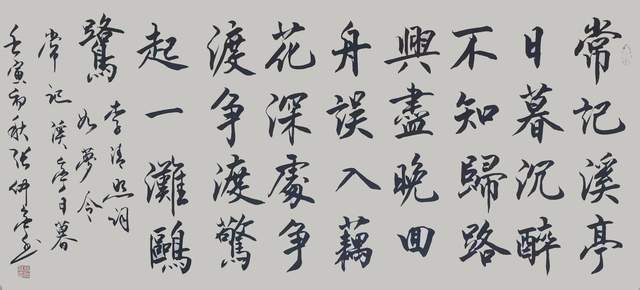 常記溪亭
日暮沉醉
不知歸路
興盡晚回
舟誤入藕
花深處争
渡争渡驚
起一灘鷗
鷺
李清照词
如夢令
常记溪亭日暮
壬寅初秋张伊